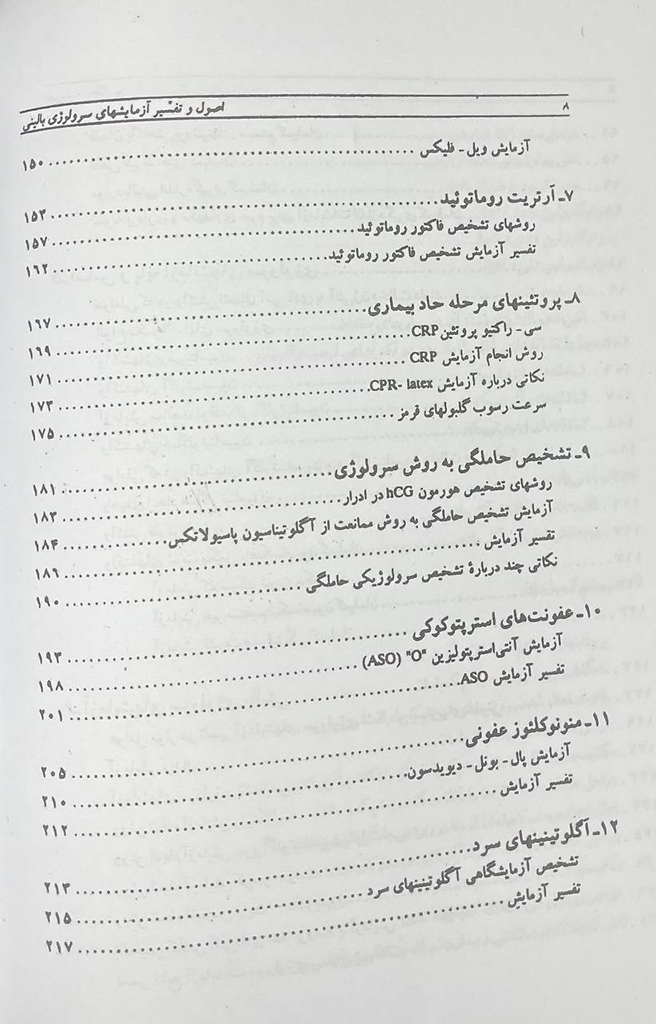 ۸ اصول و تفسیر آزمایشهای سرولوژی بالینی
آزمایش ویل - فلیکس ۱۵۰
۷ـ آرتریت روماتوئید ۱۵۳
روشهای تشخیص فاکتور روماتوئید ۱۵۷
تفسیر آزمایش تشخیص فاکتور روماتوئید ۱۶۲
۸ـ پروتئینهای مرحله حاد بیماری ۱۶۷
سی - راکتیو پروتئین CRP ۱۶۹
روش انجام آزمایش CRP ۱۷۱
نکاتی درباره آزمایش CPR- latex ۱۷۳
سرعت رسوب گلبولهای قرمز ۱۷۵
۹ـ تشخیص حاملگی به روش سرولوژی ۱۸۱
روشهای تشخیص هورمون hCG در ادرار ۱۸۳
آزمایش تشخیص حاملگی به روش ممانعت از آگلوتیناسیون پاسیولاتکس ۱۸۴
تفسیر آزمایش ۱۸۹
نکاتی چند دربارهٔ تشخیص سرولوژیکی حاملگی ۱۹۰
۱۰ـ عفونت‌های استرپتوکوکی ۱۹۳
آزمایش آنتی‌استرپتولیزین "O" (ASO) ۱۹۸
تفسیر آزمایش ASO ۲۰۱
۱۱ـ منونوکلئوز عفونی ۲۰۵
آزمایش پال - بونل - دیویدسون ۲۱۰
تفسیر آزمایش ۲۱۲
۱۲ـ آگلوتینینهای سرد ۲۱۳
تشخیص آزمایشگاهی آگلوتینینهای سرد ۲۱۵
تفسیر آزمایش ۲۱۷